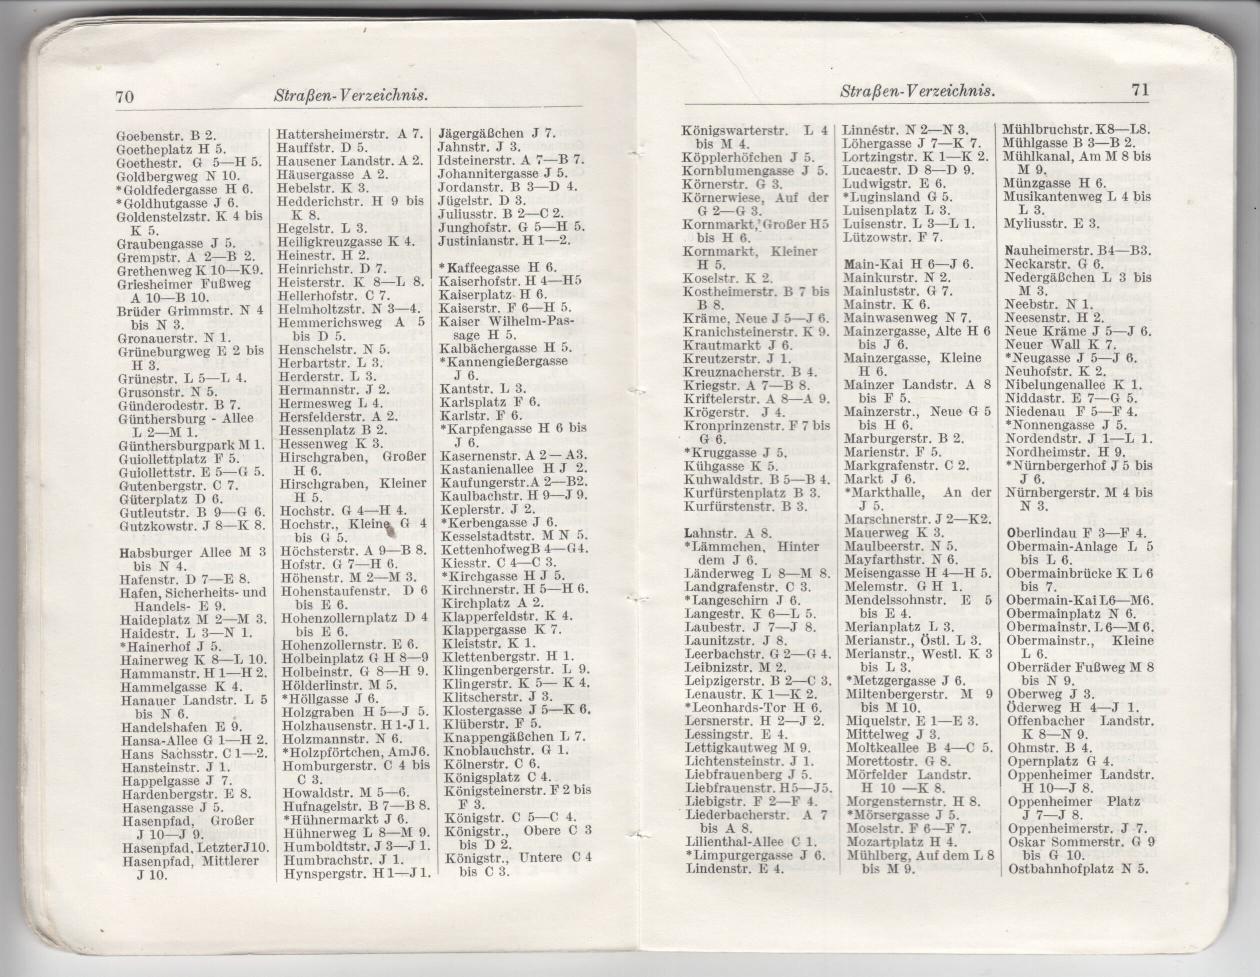 70
Straßen-Verzeichnis.
Goebenstr. B 2.
Goetheplatz H 5.
Goethestr. G 5—H 5.
Goldbergweg N 10.
*Goldfedergasse H 6.
*Goldhutgasse J 6.
Goldenstelzstr. K 4 bis
K 5.
Graubengasse J 5.
Grempstr. A 2—B 2.
Grethenweg K 10—K9.
Griesheimer Fußweg
A 10—B 10.
Brüder Grimmstr. N 4
bis N 3.
Gronauerstr. N 1.
Grüneburgweg E 2 bis
H 3.
Grünestr. L 5—L 4.
Grusonstr. N 5.
Günderodestr. B 7.
Günthersburg - Allee
L 2—M 1.
Günthersburgpark M 1.
Guiollettplatz F 5.
Guiollettstr. E 5—G 5.
Gutenbergstr. C 7.
Güterplatz D 6.
Gutleutstr. B 9—G 6.
Gutzkowstr. J 8—K 8.
Habsburger Allee M 3
bis N 4.
Hafenstr. D 7—E 8.
Hafen, Sicherheits- und
Handels- E 9.
Haideplatz M 2—M 3.
Haidestr. L 3—N 1.
*Hainerhof J 5.
Hainerweg K 8—L 10.
Hammanstr. H 1—H 2.
Hammelgasse K 4.
Hanauer Landstr. L 5
bis N 6.
Handelshafen E 9.
Hansa-Allee G 1—H 2.
Hans Sachsstr. C 1—2.
Hansteinstr. J 1.
Happelgasse J 7.
Hardenbergstr. E 8.
Hasengasse J 5.
Hasenpfad, Großer
J 10—J 9.
Hasenpfad, Letzter J10.
Hasenpfad, Mittlerer
J 10.
Hattersheimerstr. A 7.
Hauffstr. D 5.
Hausener Landstr. A 2.
Häusergasse A 2.
Hebelstr. K 3.
Hedderichstr. H 9 bis
K 8.
Hegelstr. L 3.
Heiligkreuzgasse K 4.
Heinestr. H 2.
Heinrichstr. D 7.
Heisterstr. K 8—L 8.
Hellerhofstr. C 7.
Helmholtzstr. N 3—4.
Hemmerichsweg A 5
bis D 5.
Henschelstr. N 5.
Herbartstr. L 3.
Herderstr. L 3.
Hermannstr. J 2.
Hermesweg L 4.
Hersfelderstr. A 2.
Hessenplatz B 2.
Hessenweg K 3.
Hirschgraben, Großer
H 6.
Hirschgraben, Kleiner
H 5.
Hochstr. G 4—H 4.
Hochstr., Kleine G 4
bis G 5.
Höchsterstr. A 9—B 8.
Hofstr. G 7—H 6.
Höhenstr. M 2—M 3.
Hohenstaufenstr. D 6
bis E 6.
Hohenzollernplatz D 4
bis E 6.
Hohenzollernstr. E 6.
Holbeinplatz G H 8—9
Holbeinstr. G 8—H 9.
Hölderlinstr. M 5.
*Höllgasse J 6.
Holzgraben H 5—J 5.
Holzhausenstr. H 1-J 1.
Holzmannstr. N 6.
*Holzpförtchen, Am J6.
Homburgerstr. C 4 bis
C 3.
Howaldstr. M 5—6.
Hufnagelstr. B 7—B 8.
*Hühnermarkt J 6.
Hühnerweg L 8—M 9.
Humboldtstr. J 3—J 1.
Humbrachstr. J 1.
Hynspergstr. H 1—J 1.
Jägergäßchen J 7.
Jahnstr. J 3.
Idsteinerstr. A 7—B 7.
Johannitergasse J 5.
Jordanstr. B 3—D 4.
Jügelstr. D 3.
Juliusstr. B 2—C 2.
Junghofstr. G 5—H 5.
Justinianstr. H 1—2.
*Kaffeegasse H 6.
Kaiserhofstr. H 4—H5
Kaiserplatz H 6.
Kaiserstr. F 6—H 5.
Kaiser Wilhelm-Pas-
sage H 5.
Kalbächergasse H 5.
*Kannengießergasse
J 6.
Kantstr. L 3.
Karlsplatz F 6.
Karlstr. F 6.
*Karpfengasse H 6 bis
J 6.
Kasernenstr. A 2—A3.
Kastanienallee H J 2.
Kaufungerstr. A 2—B2.
Kaulbachstr. H 9—J 9.
Keplerstr. J 2.
*Kerbengasse J 6.
Kesselstadtstr. M N 5.
Kettenhofweg B 4—G4.
Kiesstr. C 4—C 3.
*Kirchgasse H J 5.
Kirchnerstr. H 5—H 6.
Kirchplatz A 2.
Klapperfeldstr. K 4.
Klappergasse K 7.
Kleiststr. K 1.
Klettenbergstr. H 1.
Klingenbergerstr. L 9.
Klingerstr. K 5— K 4.
Klitscherstr. J 3.
Klostergasse J 5—K 6.
Klüberstr. F 5.
Knappengäßchen L 7.
Knoblauchstr. G 1.
Kölnerstr. C 6.
Königsplatz C 4.
Königsteinerstr. F 2 bis
F 3.
Königstr. C 5—C 4.
Königstr., Obere C 3
bis D 2.
Königstr., Untere C 4
bis C 3.
Straßen-Verzeichnis.
71
Königswarterstr. L 4
bis M 4.
Köpplerhöfchen J 5.
Kornblumengasse J 5.
Körnerstr. G 3.
Körnerwiese, Auf der
G 2—G 3.
Kornmarkt, Großer H5
bis H 6.
Kornmarkt, Kleiner
H 5.
Koselstr. K 2.
Kostheimerstr. B 7 bis
B 8.
Kräme, Neue J 5—J 6.
Kranichsteinerstr. K 9.
Krautmarkt J 6.
Kreutzerstr. J 1.
Kreuznacherstr. B 4.
Kriegstr. A 7—B 8.
Kriftelerstr. A 8—A 9.
Krögerstr. J 4.
Kronprinzenstr. F 7 bis
G 6.
*Kruggasse J 5.
Kühgasse K 5.
Kuhwaldstr. B 5—B 4.
Kurfürstenplatz B 3.
Kurfürstenstr. B 3.
Lahnstr. A 8.
*Lämmchen, Hinter
dem J 6.
Länderweg L 8—M 8.
Landgrafenstr. C 3.
*Langeschirn J 6.
Langestr. K 6—L 5.
Laubestr. J 7—J 8.
Launitzstr. J 8.
Leerbachstr. G 2—G 4.
Leibnizstr. M 2.
Leipzigerstr. B 2—C 3.
Lenaustr. K 1—K 2.
*Leonhards-Tor H 6.
Lersnerstr. H 2—J 2.
Lessingstr. E 4.
Lettigkautweg M 9.
Lichtensteinstr. J 1.
Liebfrauenberg J 5.
Liebfrauenstr. H5—J5.
Liebigstr. F 2—F 4.
Liederbacherstr. A 7
bis A 8.
Lilienthal-Allee C 1.
*Limpurgergasse J 6.
Lindenstr. E 4.
Linnéstr. N 2—N 3.
Löhergasse J 7—K 7.
Lortzingstr. K 1—K 2.
Lucaestr. D 8—D 9.
Ludwigstr. E 6.
*Luginsland G 5.
Luisenplatz L 3.
Luisenstr. L 3—L 1.
Lützowstr. F 7.
Main-Kai H 6—J 6.
Mainkurstr. N 2.
Mainluststr. G 7.
Mainstr. K 6.
Mainwasenweg N 7.
Mainzergasse, Alte H 6
bis J 6.
Mainzergasse, Kleine
H 6.
Mainzer Landstr. A 8
bis F 5.
Mainzerstr., Neue G 5
bis H 6.
Marburgerstr. B 2.
Marienstr. F 5.
Markgrafenstr. C 2.
Markt J 6.
*Markthalle, An der
J 5.
Marschnerstr. J 2—K2.
Mauerweg K 3.
Maulbeerstr. N 5.
Mayfarthstr. N 6.
Meisengasse H 4—H 5.
Melemstr. G H 1.
Mendelssohnstr. E 5
bis E 4.
Merianplatz L 3.
Merianstr., Östl. L 3.
Merianstr., Westl. K 3
bis L 3.
*Metzgergasse J 6.
Miltenbergerstr. M 9
bis M 10.
Miquelstr. E 1—E 3.
Mittelweg J 3.
Moltkeallee B 4—C 5.
Morettostr. G 8.
Mörfelder Landstr.
H 10 —K 8.
Morgensternstr. H 8.
*Mörsergasse J 5.
Moselstr. F 6—F 7.
Mozartplatz H 4.
Mühlberg, Auf dem L 8
bis M 9.
Mühlbruchstr. K8—L8.
Mühlgasse B 3—B 2.
Mühlkanal, Am M 8 bis
M 9.
Münzgasse H 6.
Musikantenweg L 4 bis
L 3.
Myliusstr. E 3.
Nauheimerstr. B4—B3.
Neckarstr. G 6.
Nedergäßchen L 3 bis
M 3.
Neebstr. N 1.
Neesenstr. H 2.
Neue Kräme J 5—J 6.
Neuer Wall K 7.
*Neugasse J 5—J 6.
Neuhofstr. K 2.
Nibelungenallee K 1.
Niddastr. E 7—G 5.
Niedenau F 5—F 4.
*Nonnengasse J 5.
Nordendstr. J 1—L 1.
Nordheimstr. H 9.
*Nürnbergerhof J 5 bis
J 6.
Nürnbergerstr. M 4 bis
N 3.
Oberlindau F 3—F 4.
Obermain-Anlage L 5
bis L 6.
Obermainbrücke K L 6
bis 7.
Obermain-Kai L6—M6.
Obermainplatz N 6.
Obermainstr. L 6—M 6.
Obermainstr., Kleine
L 6.
Oberräder Fußweg M 8
bis N 9.
Oberweg J 3.
Öderweg H 4—J 1.
Offenbacher Landstr.
K 8—N 9.
Ohmstr. B 4.
Opernplatz G 4.
Oppenheimer Landstr.
H 10—J 8.
Oppenheimer Platz
J 7—J 8.
Oppenheimerstr. J 7.
Oskar Sommerstr. G 9
bis G 10.
Ostbahnhofplatz N 5.